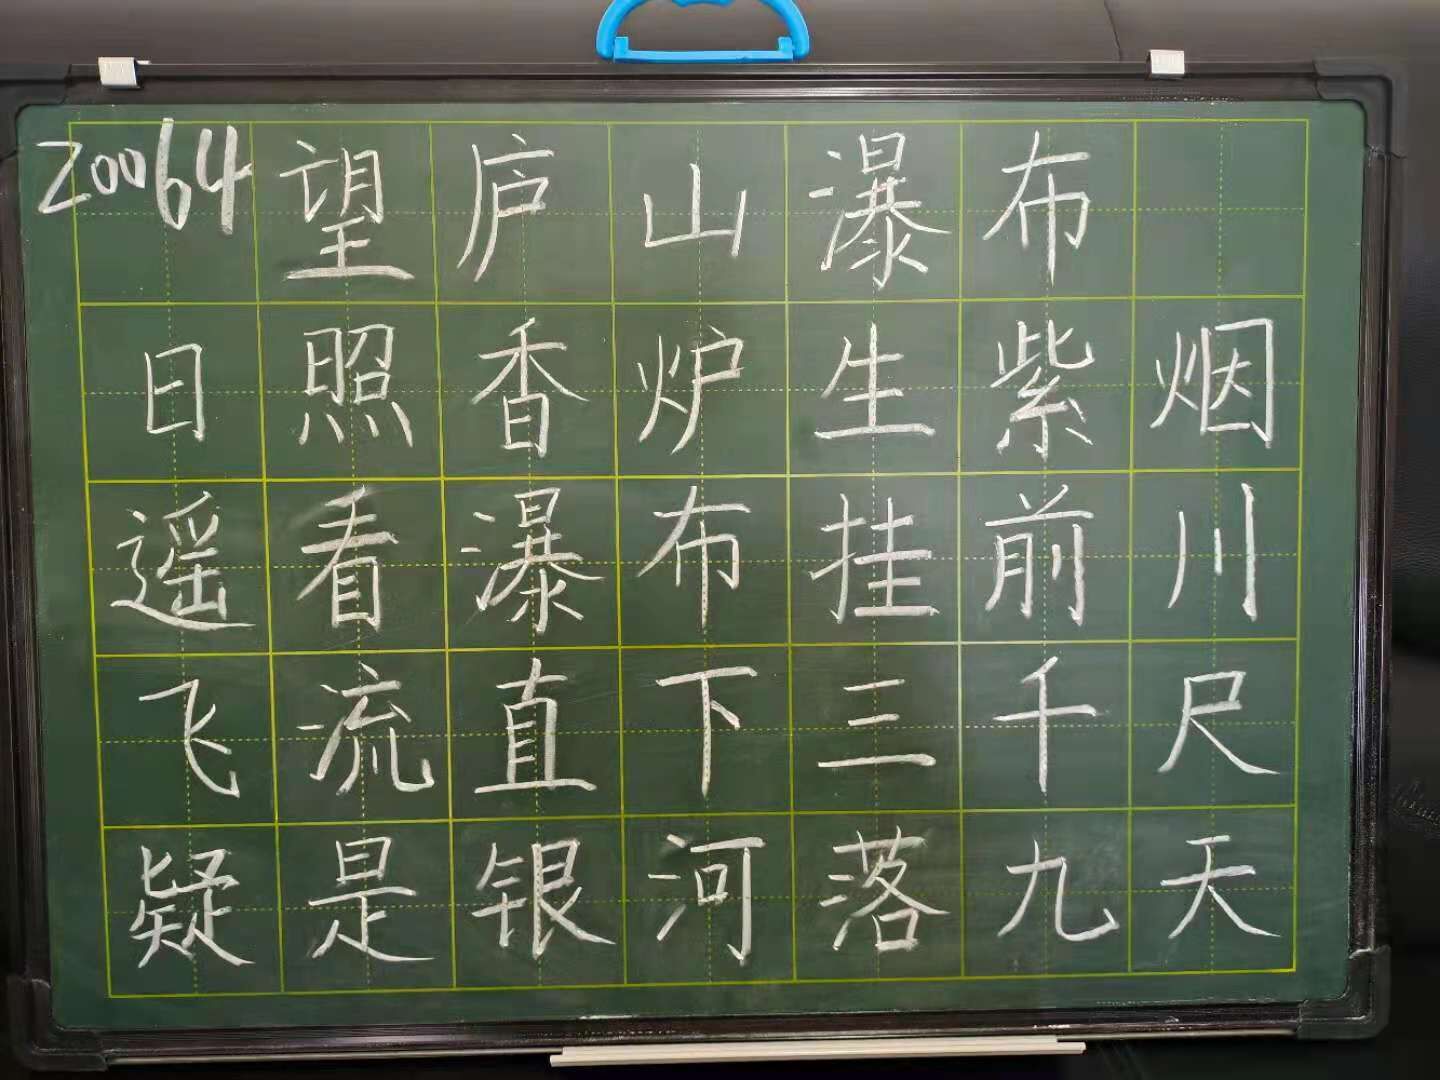 20064 望庐山瀑布
日照香炉生紫烟
遥看瀑布挂前川
飞流直下三千尺
疑是银河落九天